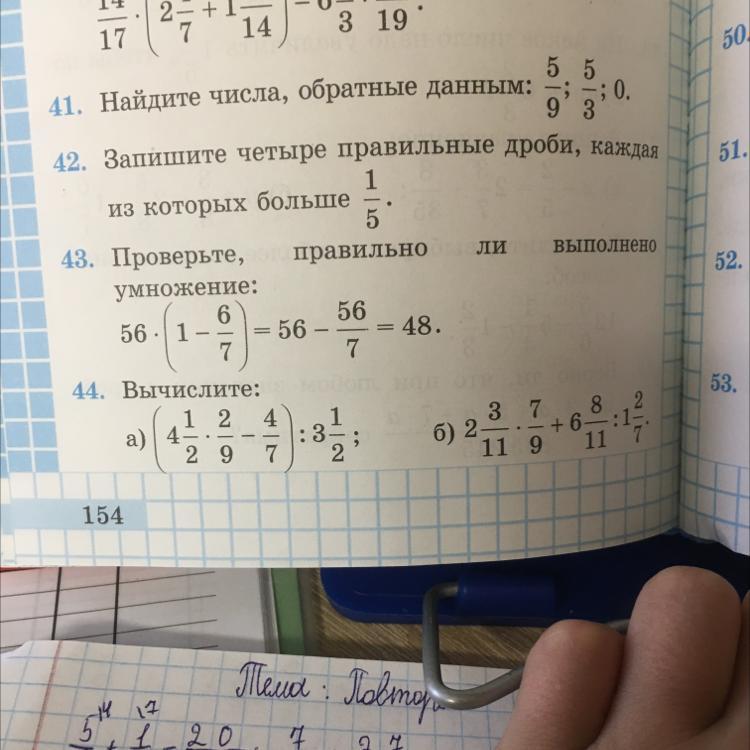 14/17 · (2 /7 + 1 /14) /3 19 .
41. Найдите числа, обратные данным: 5/9; 5/3; 0.
42. Запишите четыре правильные дроби, каждая
из которых больше 1/5.
43. Проверьте, правильно ли выполнено
умножение:
56 · (1 − 6/7) = 56 − 56/7 = 48.
44. Вычислите:
а) (4 1/2 · 2/9 − 4/7) : 3 1/2; б) 2 3/11 · 7/9 + 6 8/11 : 1 2/7.
154
50.
51.
52.
53.
Тема : Повтор